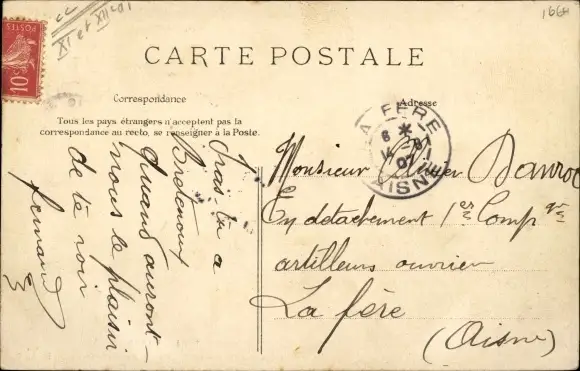 XI et XII
166A
POSTES
10c
CARTE POSTALE
Correspondance
Adresse
Tous les pays étrangers n'acceptent pas la
correspondance au recto, se renseigner à la Poste.
LA FERE
AISNE
07
iras-tu a
Bretenoux
Quand auront-
nous le plaisir
de te voir
Fernand
Monsieur
En detachement 1er Comp
artilleurs ouvrier
La fère
(Aisne)